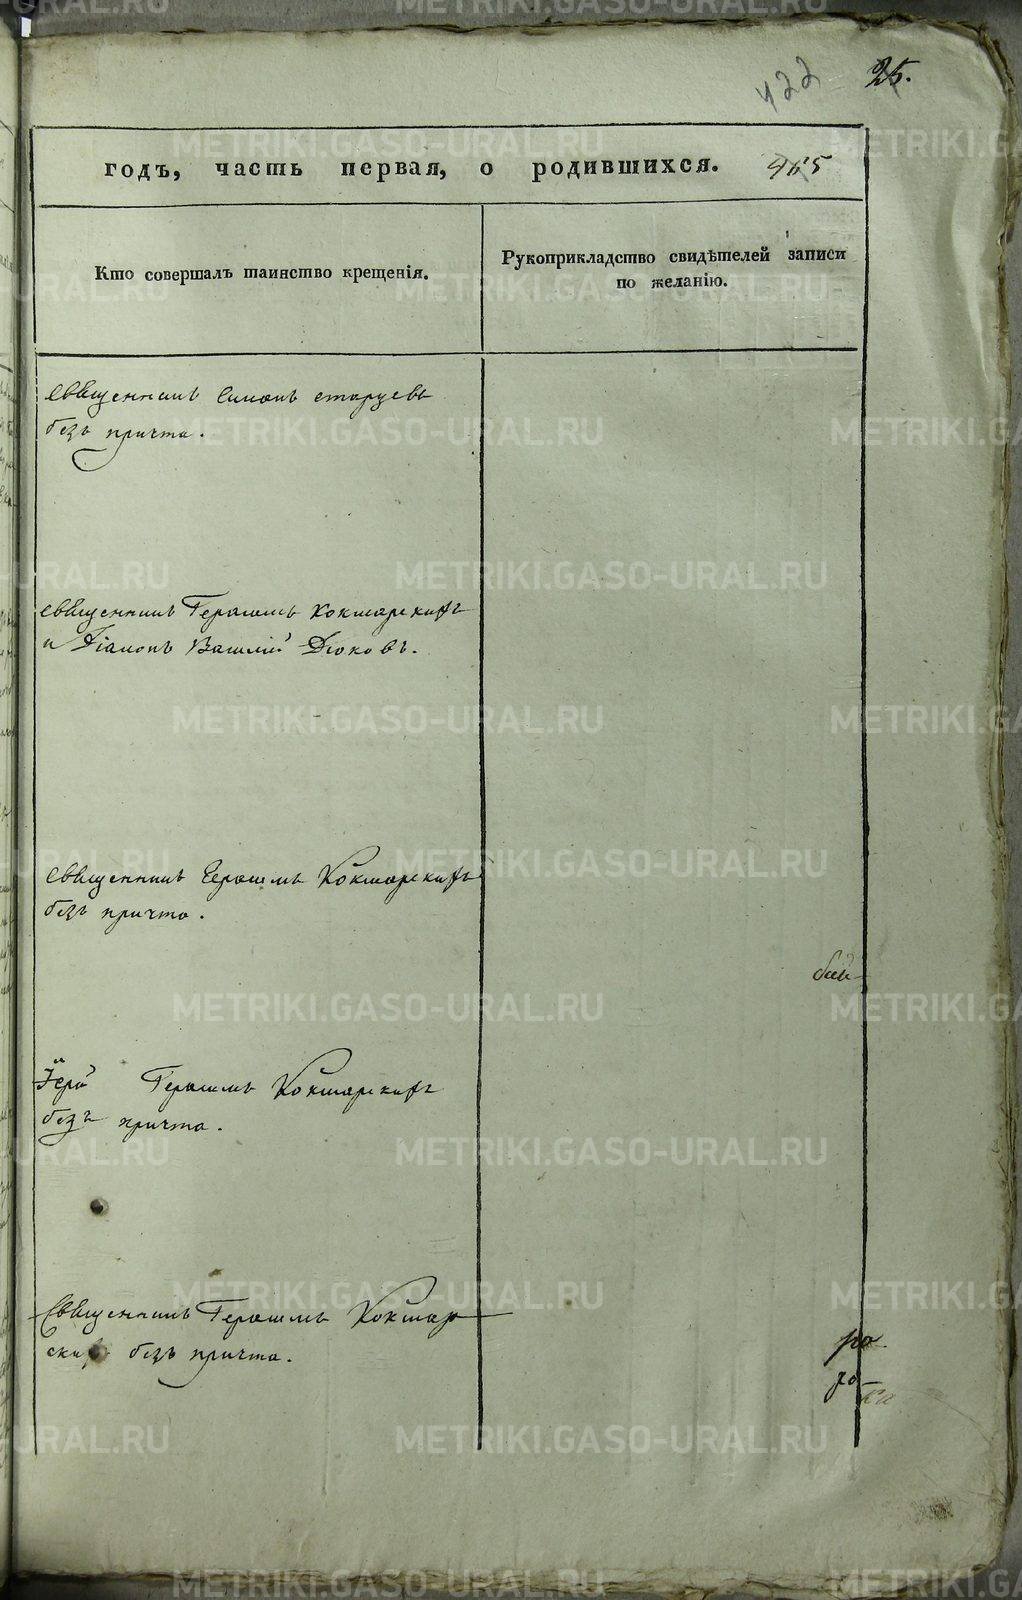 422 25.
годъ, часть первая, о родившихся. 465
Кто совершалъ таинство крещенія.
Рукоприкладство свидѣтелей записи
по желанію.
Священникъ Симонъ старцевъ
безъ причта.
священникъ Герасимъ Кокшарскихъ
и Діаконъ Василій Дюковъ.
священникъ Герасимъ Кокшарскихъ
безъ причта.
Іерей Герасимъ Кокшарскихъ
безъ причта.
Священникъ Герасимъ Кокшар
скихъ безъ причта.
ро
ка
METRIKI.GASO-URAL.RU